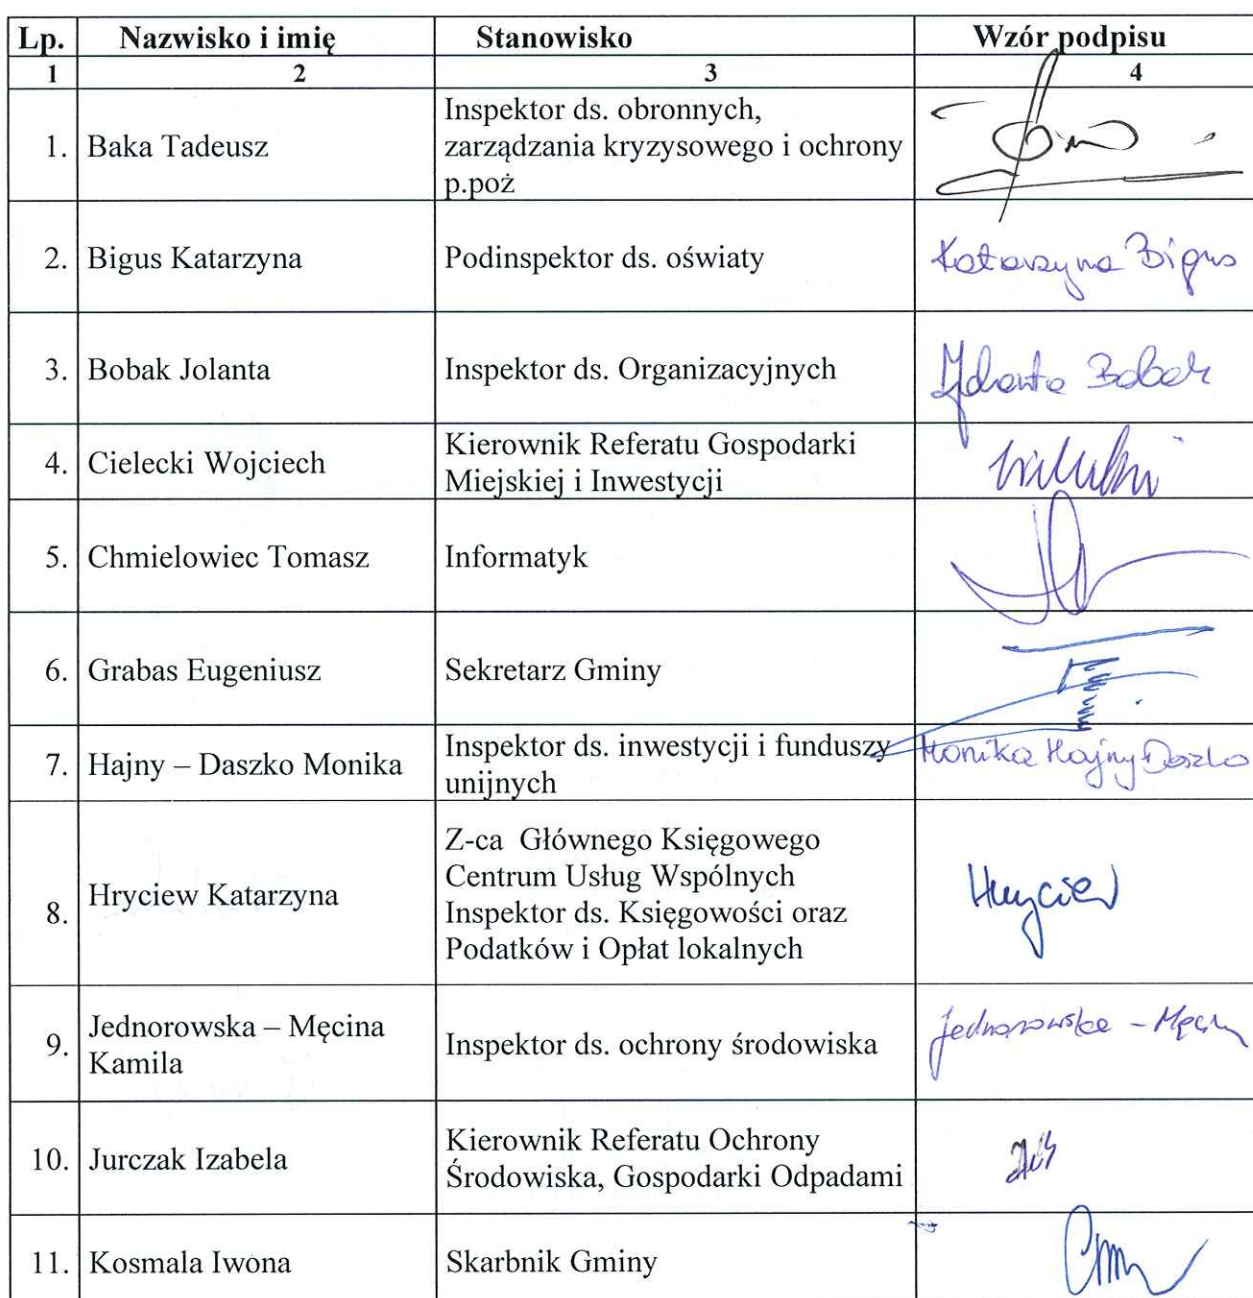 Lp. Nazwisko i imię Stanowisko Wzór podpisu
1 2 3 4
1. Baka Tadeusz Inspektor ds. obronnych,
zarządzania kryzysowego i ochrony
p.poż
2. Bigus Katarzyna Podinspektor ds. oświaty Katarzyna Bigus
3. Bobak Jolanta Inspektor ds. Organizacyjnych Jolanta Bobak
4. Cielecki Wojciech Kierownik Referatu Gospodarki
Miejskiej i Inwestycji
5. Chmielowiec Tomasz Informatyk
6. Grabas Eugeniusz Sekretarz Gminy
7. Hajny – Daszko Monika Inspektor ds. inwestycji i funduszy
unijnych Monika Hajny Daszko
8. Hryciew Katarzyna Z-ca Głównego Księgowego
Centrum Usług Wspólnych
Inspektor ds. Księgowości oraz
Podatków i Opłat lokalnych Hryciew
9. Jednorowska – Męcina
Kamila Inspektor ds. ochrony środowiska Jednorowska -
10. Jurczak Izabela Kierownik Referatu Ochrony
Środowiska, Gospodarki Odpadami
11. Kosmala Iwona Skarbnik Gminy